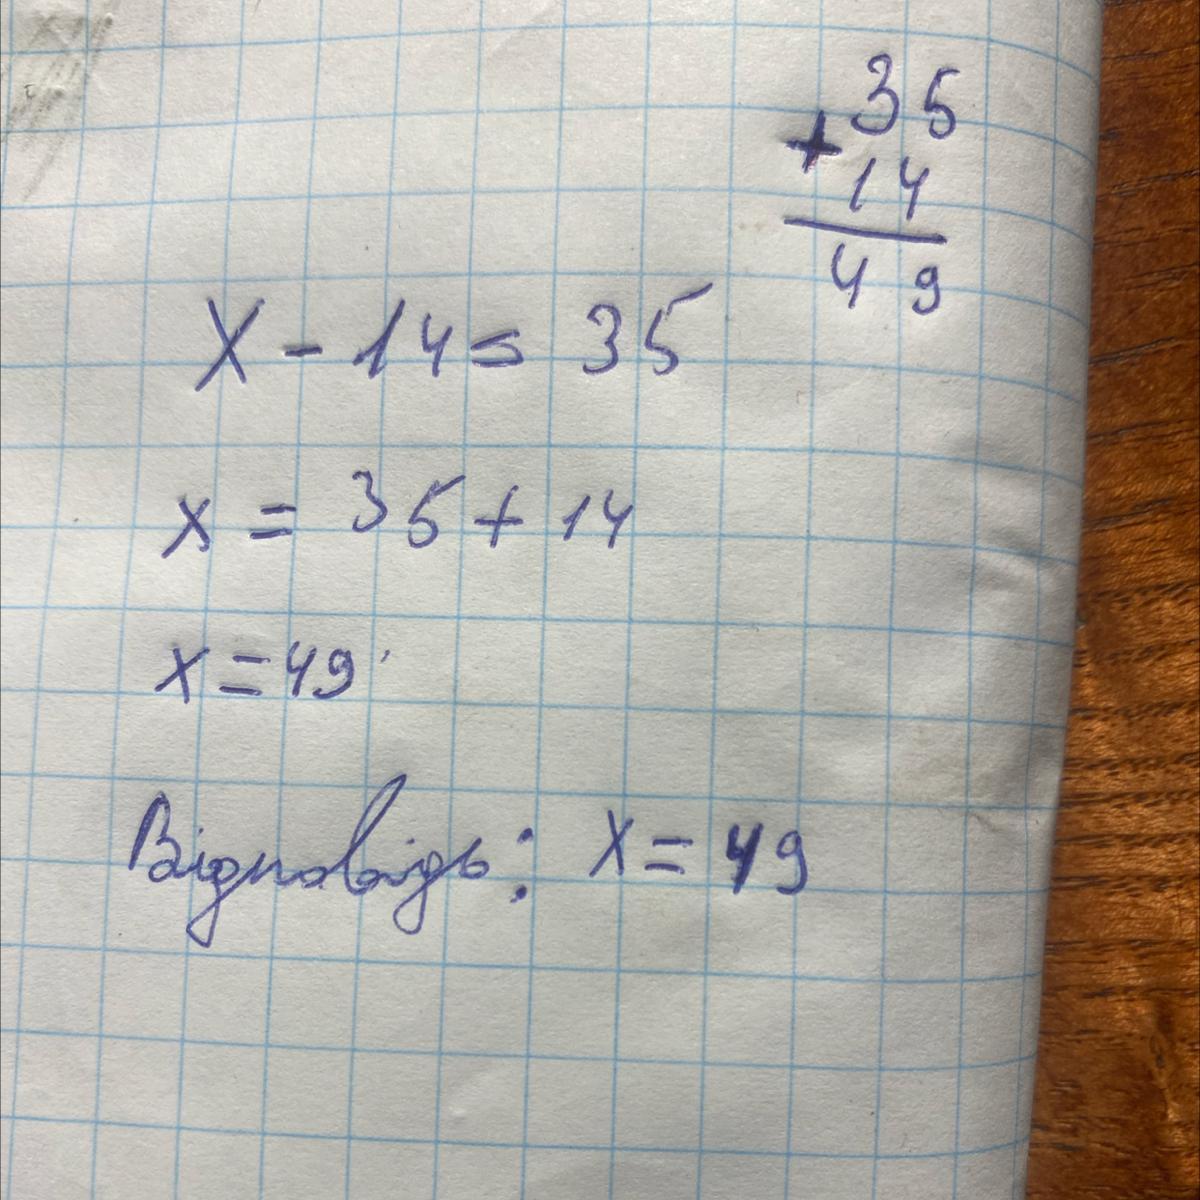 35
+ 14
49
X - 14 = 35
x = 35 + 14
x = 49
Відповідь: x = 49